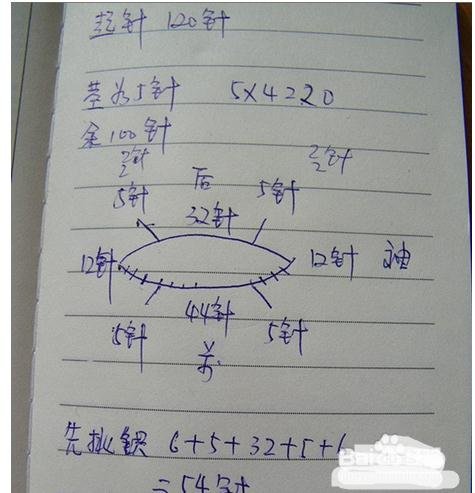 起针 120针
茎为5针 5×4=20
余100针
2/2针 2/2针
5针 后 5针
32针
12针 12针 袖
44针
5针 5针
前
先挑织 6+5+32+5+6
=54针
Bai